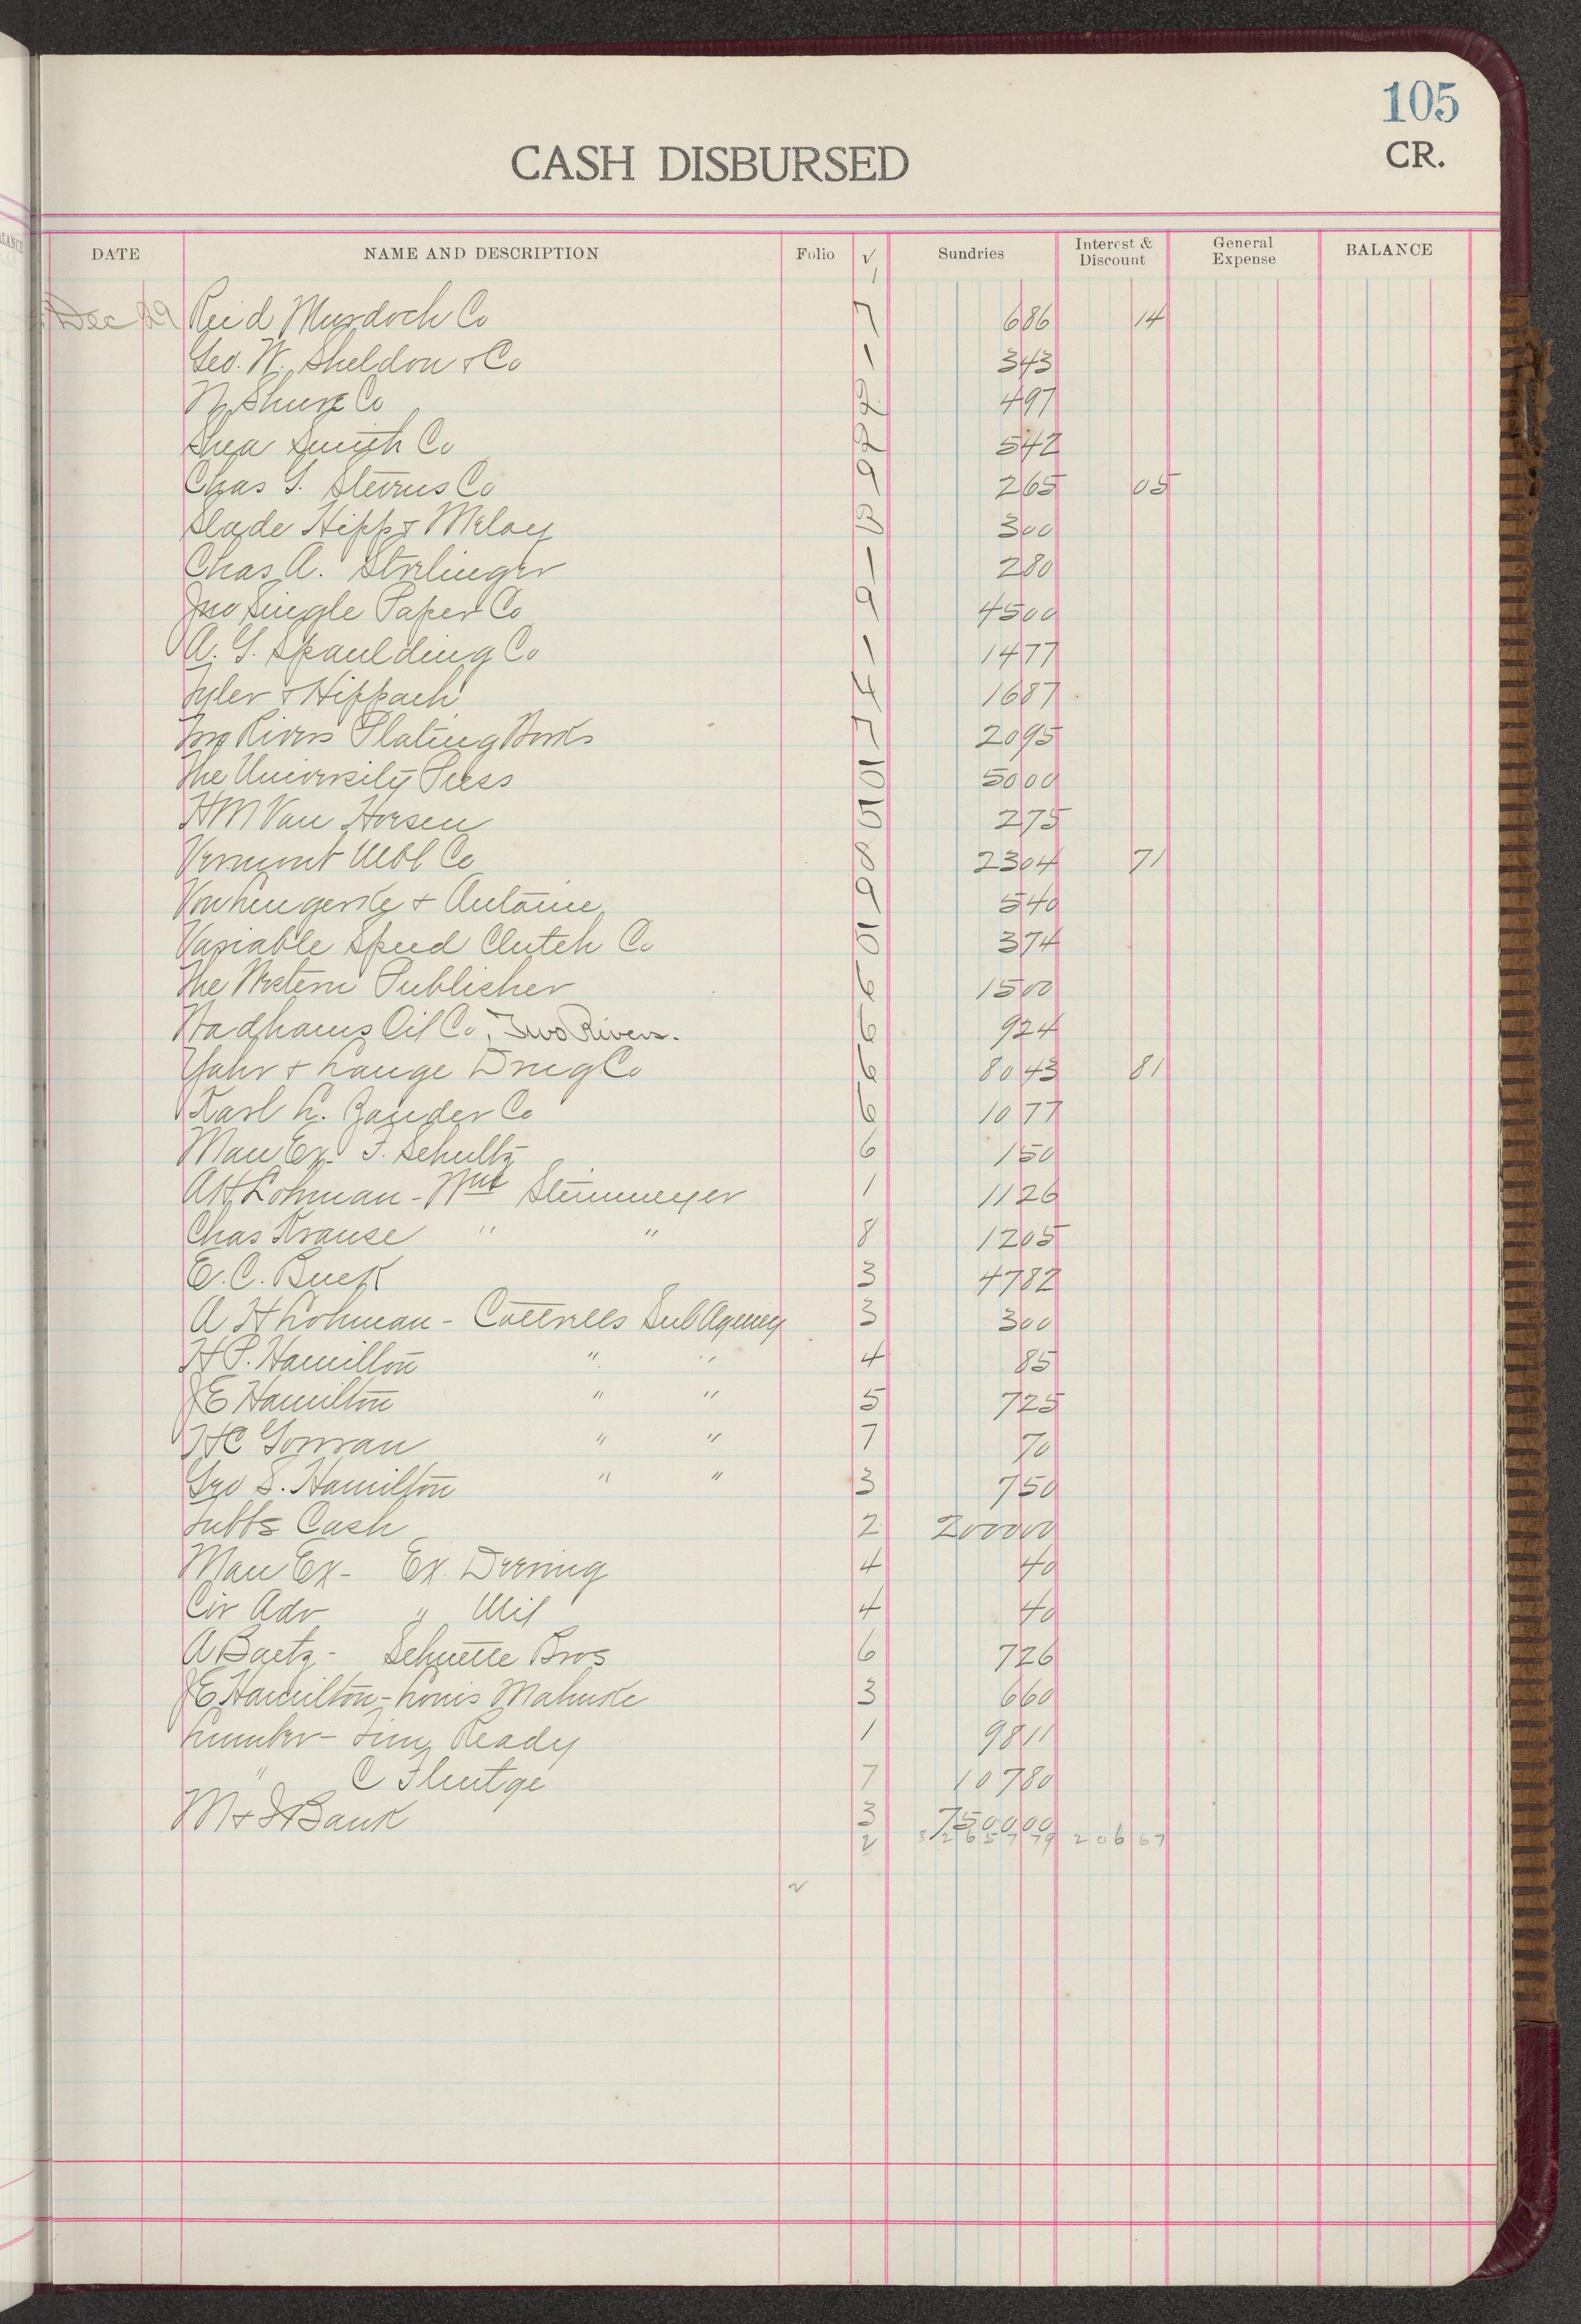 105
CASH DISBURSED CR.
DATE NAME AND DESCRIPTION Folio √ Sundries Interest & Discount General Expense BALANCE
1
Dec 29 Reid Murdoch Co 7 6 86 14
Geo. W. Sheldon & Co 1 3 43
N Shure Co 2 4 97
Shea Smith Co 2 5 42
Chas G. Stevens Co 9 2 65 05
Slade Hipp & Meloy 3 00
Chas A. Strelinger 1 2 80
Jno Single Paper Co 9 45 00
A. G. Spaulding Co 1 14 77
Tyler & Hippach 4 16 87
Two Rivers Plating Works 7 20 95
The University Press 5 50 00
H M Van Hoesen 5 2 75
Vermont Mbl Co 8 23 04 71
Von Lengerke & Antoine 9 5 40
Variable Speed Clutch Co 5 3 74
The Western Publisher 6 15 00
Wadhams Oil Co, Two Rivers. 6 9 24
Yahr & Lange Drug Co 6 80 43 81
Karl L. Zander Co 6 10 77
Man Ex. F. Schultz 6 1 50
A H Lohman - Wm Steinmeyer 1 11 26
Chas Krause " " 8 12 05
E. C. Buek 3 47 82
A H Lohman - Cottrells Sub Agency 3 3 00
H P. Hamilton " " 4 85
J E Hamilton " " 5 7 25
H C Gowran " " 7 70
Geo S. Hamilton " " 3 7 50
Tubbs Cash 2 2000 00
Man Ex - Ex. Deering 4 40
Cir Adv " Mil 4 40
A Baetz - Schuette Bros 6 7 26
J E Hamilton - Louis Mahnke 3 6 60
Lumber - Tim Ready 1 98 11
" C Fluitge 7 107 80
M & I Bank 3 7500 00
√ 82657 79 206 67
√